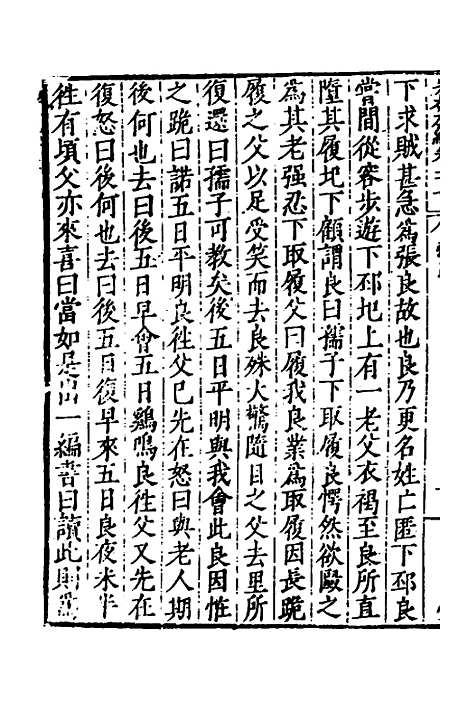 下求賊甚急為張良故也良乃更名姓亡匿下邳良
嘗間從容步遊下邳圯上有一老父衣褐至良所直
墮其履圯下顧謂良曰孺子下取履良愕然欲毆之
為其老强忍下取履父曰履我良業為取履因長跪
履之父以足受笑而去良殊大驚隨目之父去里所
復還曰孺子可教矣後五日平明與我會此良因怪
之跪曰諾五日平明良徃父已先在怒曰與老人期
後何也去曰後五日早會五日鷄鳴良徃父又先在
復怒曰後何也去曰後五日復早來五日良夜未半
徃有頃父亦來喜曰當如是出一編書曰讀此則